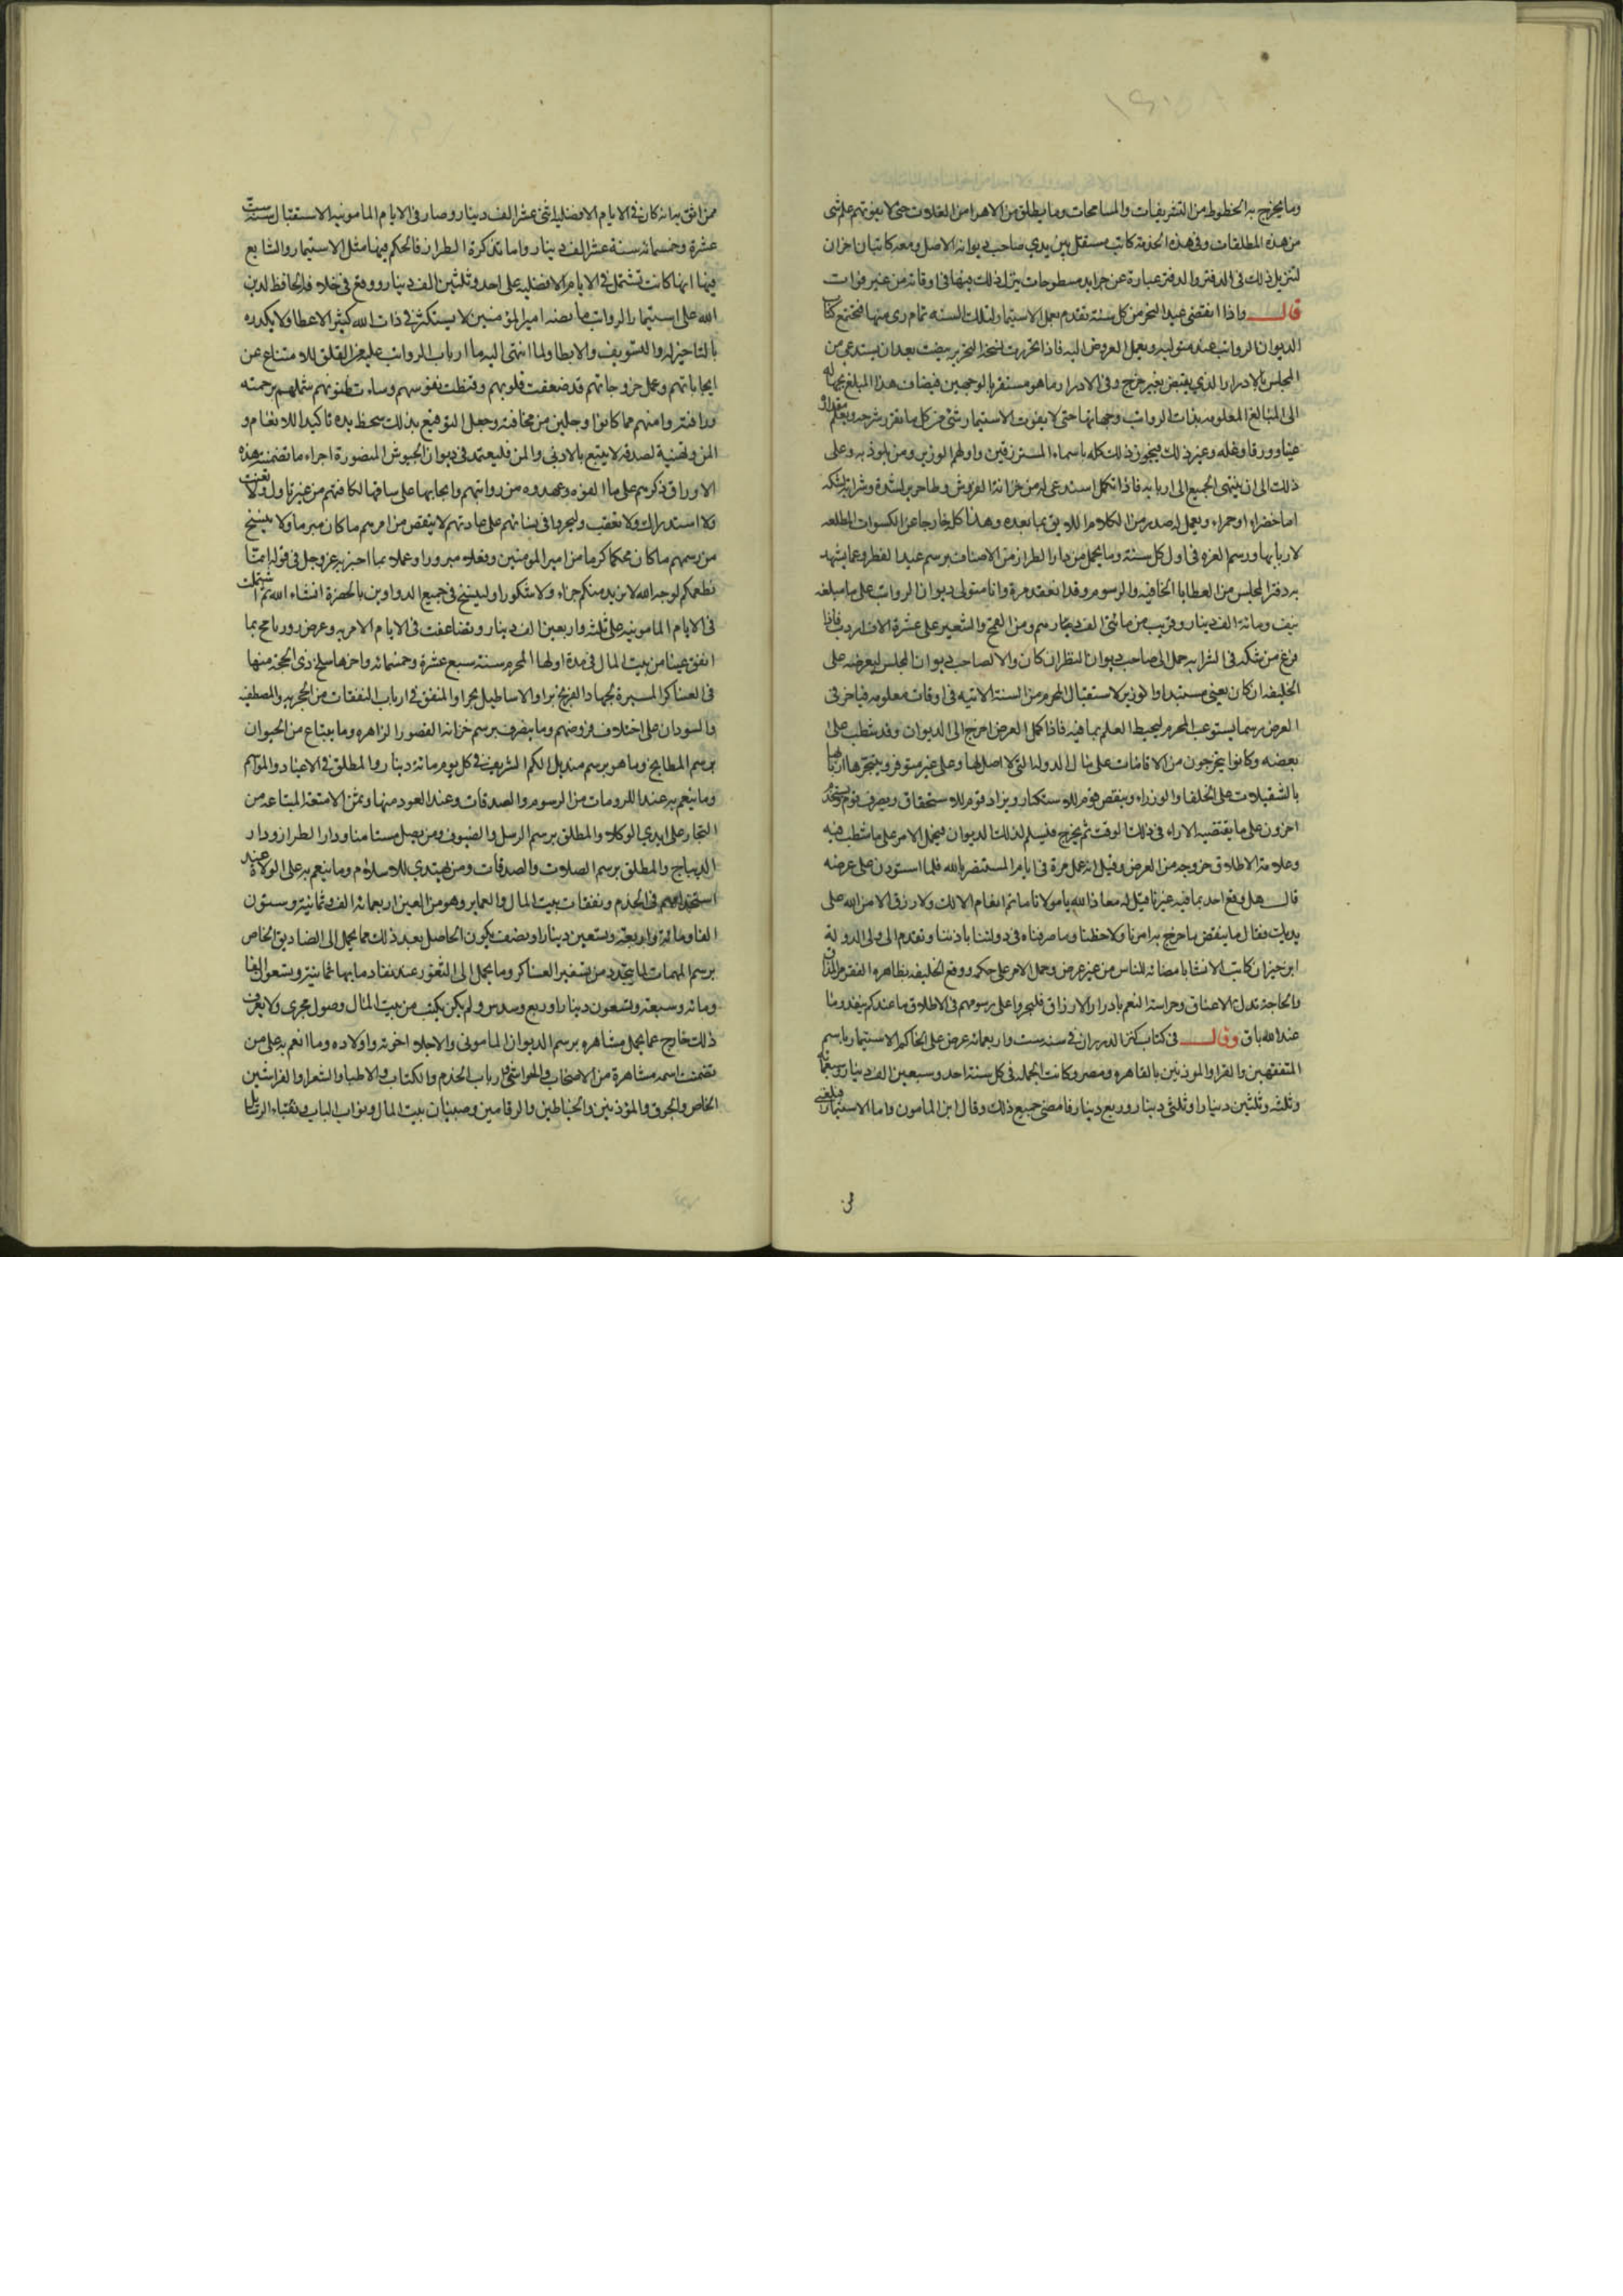 وما يخرج به الخطوط من التشريفات والمسامحات وما يطلق من الاهرا من الغلات حتى لا يفوتهم علم شي
من هذه المطلقات وفي هذه الخدمة كاتب مستقل بين يدي صاحب ديوانه الاصل ومعه كاتبان اخران
لتنزيل ذلك في الدفتر والدفتر عبارة عن جرايد مسطوحات ينزل ذلك فيها في اوقاته من غير فوات
قال واذا انقضى عيد النحر من كل سنة تقدم بعمل الاستيمار لتلك السنه تمام ذى منها فيجتمع كتاب
الديوان الرواتب عند متوليه ويعمل العروض اليه فاذا تحررت نسخة التحرير بيضت بعد ان يستدعى من
المجلس بالادرار الذي يقبض بغير خرج وفي الادرار ما هو مستقر بالوجهين فيضاف هذا المبلغ بجهاته
الى المبالغ المعلومه بذات الرواتب وجهاتها حتى لا يفوت الاستيمار شئ من كل ما تقرر شرحه ويعلم مقداره
عينا وورقا وغله وغير ذلك فيحوز ذلك كله باسماء المسترزقين واولهم الوزير ومن يلوذ به وعلى
ذلك الى ان ينتهى الجميع الى ارباب فاذا تكمل استدعى له من خزانة الفرش وطا حرير لشده وشرابة لشكه
اما خضراء او حمراء ويعمل له صدر من الكلام اللايق بما بعده وهذا كله خارجا عن الكسوات المطلقه
لاربابها ورسم الغره في اول كل سنة وما يحمل من دار الطراز من الاصناف برسم عيد الفطر وعما يشهد
به دفتر المجلس من العطايا الخافيه والرسوم وقد انعقد مرة وانا متولى ديوان الرواتب على ما مبلغه
نيف ومائة الف دينار وقريب من مائتى الف دينار ومن القمح والشعير على عشرة الاف اردب فاذا
فرغ من شكه في الشرابه حمل الى صاحب ديوان النظر ان كان والا لصاحب ديوان المجلس ليعرضه على
الخليفه ان كان يعني مستبدا او الوزير لاستقبال المحرم من السنة الاتيه في اوقات معلومه فياخر في
العرض برسما يستوعب المحرم ليحيط العلم بما فيه فاذا كمل العرض اخرج الى الديوان وقد شطب على
بعضه وكانوا يخرجون من الاقامات على مال الدولة التي لا اصل لها وعلى غير متوفر وينتجزها اربابها
بالشفيلات على الخلفا والوزراء وينقص قوم للاستكثار ويزاد قوم للاستحقاق ويصرف قوم ويستخدم
اخرون على ما يقتضيه الاراء في ذلك الوقت ثم يخرج فيسلم لذلك الديوان فيحمل الامر على ما شطب فيه
وعلامة الاطلاق خروجه من العرض وقيل انه عمل مرة في ايام المستنصر بالله فلما استؤذن على عرضه
قال هل وقع احد بما فيه غيرنا قيل له معاذ الله يا مولانا ما تم انعام الا لك ولا رزق الا من الله على
يديك فقال ما ينقض ما خرج به امرنا ولا خطنا وما صرفناه في دولتنا باذننا وتقدم الى ولي الدولة
ابن خيران كاتب الانشا بامضائه للناس من غير عرض وحمل الامر على حكمه ووقع الخليفه بظاهره الفقر مر المذاق
والحاجة تذل الاعناق وحراسة النعم بادرار الارزاق فليجروا على رسومهم في الاطلاق ما عندكم ينفد وما
عند الله باق وقال في كتاب كنز الدرر ان في سنه ست واربعمائه عرض على الحاكم الاستيمار باسم
المتفقهين والقرا والموذنين بالقاهره ومصر وكانت الجمله في كل سنة احد وسبعين الف دينار وسبعمائه
وثلثه وثلثين دينارا وثلثى دينار وربع دينار فامضى جميع ذلك وقال ابن المامون واما الاستيمار فبلغني
من
ممن اثق به انه كان في الايام الافضليه اثنى عشر الف دينار وصار في الايام المامونيه الاستقبال سنة ست
عشرة وخمسمائه ستة عشر الف دينار واما تذكرة الطراز فالحكم فيها مثل الاستيمار والشايع
فيها انها كانت تشتمل في الايام الافضليه على احد وثلثين الف دينار ووقع في خلافة الحافظ لدين
الله على استيمار الرواتب ما نصه امير المؤمنين لا يستكثر في ذات الله كثير الاعطا ولا يكدره
بالتاخير له والتسويف والابطا ولما انتهى اليه ما ارباب الرواتب عليه من القلق للامتناع من
ايجاباتهم وعمل خروجاتهم قد ضعفت قلوبهم وقنطت نفوسهم وساءت ظنونهم شملهم برحمته
ورافته وامنهم مما كانوا وجلين من مخافته وجعل التوقيع بذلك بخط يده تاكيدا للانعام و
المن وتهنية لصدقه لا يتبع بالاذى والمن فليعتمد في ديوان الجيوش المنصورة اجراء ما تضمنته هذه
الاوراق ذكرهم على ما الفوه وعهدوه من رواتبهم وايجابها على سياقها لكافتهم من غير تاول ولا تعنت
ولا استدراك ولا تعقب وليجروا في نسيباتهم على عادتهم لا ينقص من امرهم ما كان مبرما ولا ينسخ
من رسمهم ما كان محكما كرما من امير المومنين وفعلا مبرورا وعملا بما اخبر به عز وجل في قوله انما
نطعمكم لوجه الله لا نريد منكم جزاء ولا شكورا ولينسخ في جميع الدواوين بالحضرة انشاء الله تم اشتملت
في الايام المامونيه على ثلثه واربعين الف دينار وتضاعفت في الايام الامريه وعرض روزنامج بما
انفق عينا من بيت المال في مدة اولها المحرم سنة سبع عشرة وخمسمائه واخرها سلخ ذى الحجة منها
في العساكر المسيرة لجهاد الفرنج برا والاساطيل بحرا والمنفق في ارباب النفقات من الحجريه والمصطفيه
والسودان على اختلاف قبوضهم وما ينصرف برسم خزانة القصور الزاهره وما يبتاع من الحيوان
برسم المطابخ وما هو برسم منديل الكم الشريف في كل يوم مائة دينار والمطلق في الاعياد والمواسم
وما ينعم به عند الركوبات من الرسوم والصدقات وعند العود منها وثمن الامتعة المبتاعه من
التجار على ايدي الوكلاء والمطلق برسم الرسل والضيوف ومن يصل مستامنا ودار الطراز ودار
الديباج والمطلق برسم الصلات والصدقات ومن يهتدي للاسلام وما ينعم به على الولاة عند
استخدامهم في الخدم ونفقات بيت المال والعماير وهو من العين اربعمائه الف وثمانيه وستون
الفا ومائه واربعة وتسعين دينارا ونصف يكون الحاصل بعد ذلك مما يحمل الى الصناديق الخاص
برسم المهمات لما يتجدد من تسفير العساكر وما يحمل الى الثغور عند نفاد ما بها ثمانيه وتسعون الفا
ومائه وسبعة وتسعون دينارا وربع وسدس ولم يكن يكتب من بيت المال وصول مجرى ولا يعرف
ذلك خارج عما يحمل مشاهره برسم الديوان الماموني والاجلاء اخوته واولاده وما انعم به على من
تضمنت اسمه مشاهرة من الاصحاب والحواشي وارباب الخدم والكتاب والاطبا والشعرا والفراشين
الخاص والجوق والمؤذنين والخياطين والرقامين وصبيان بيت المال ونواب الباب ونقباء الرسائل